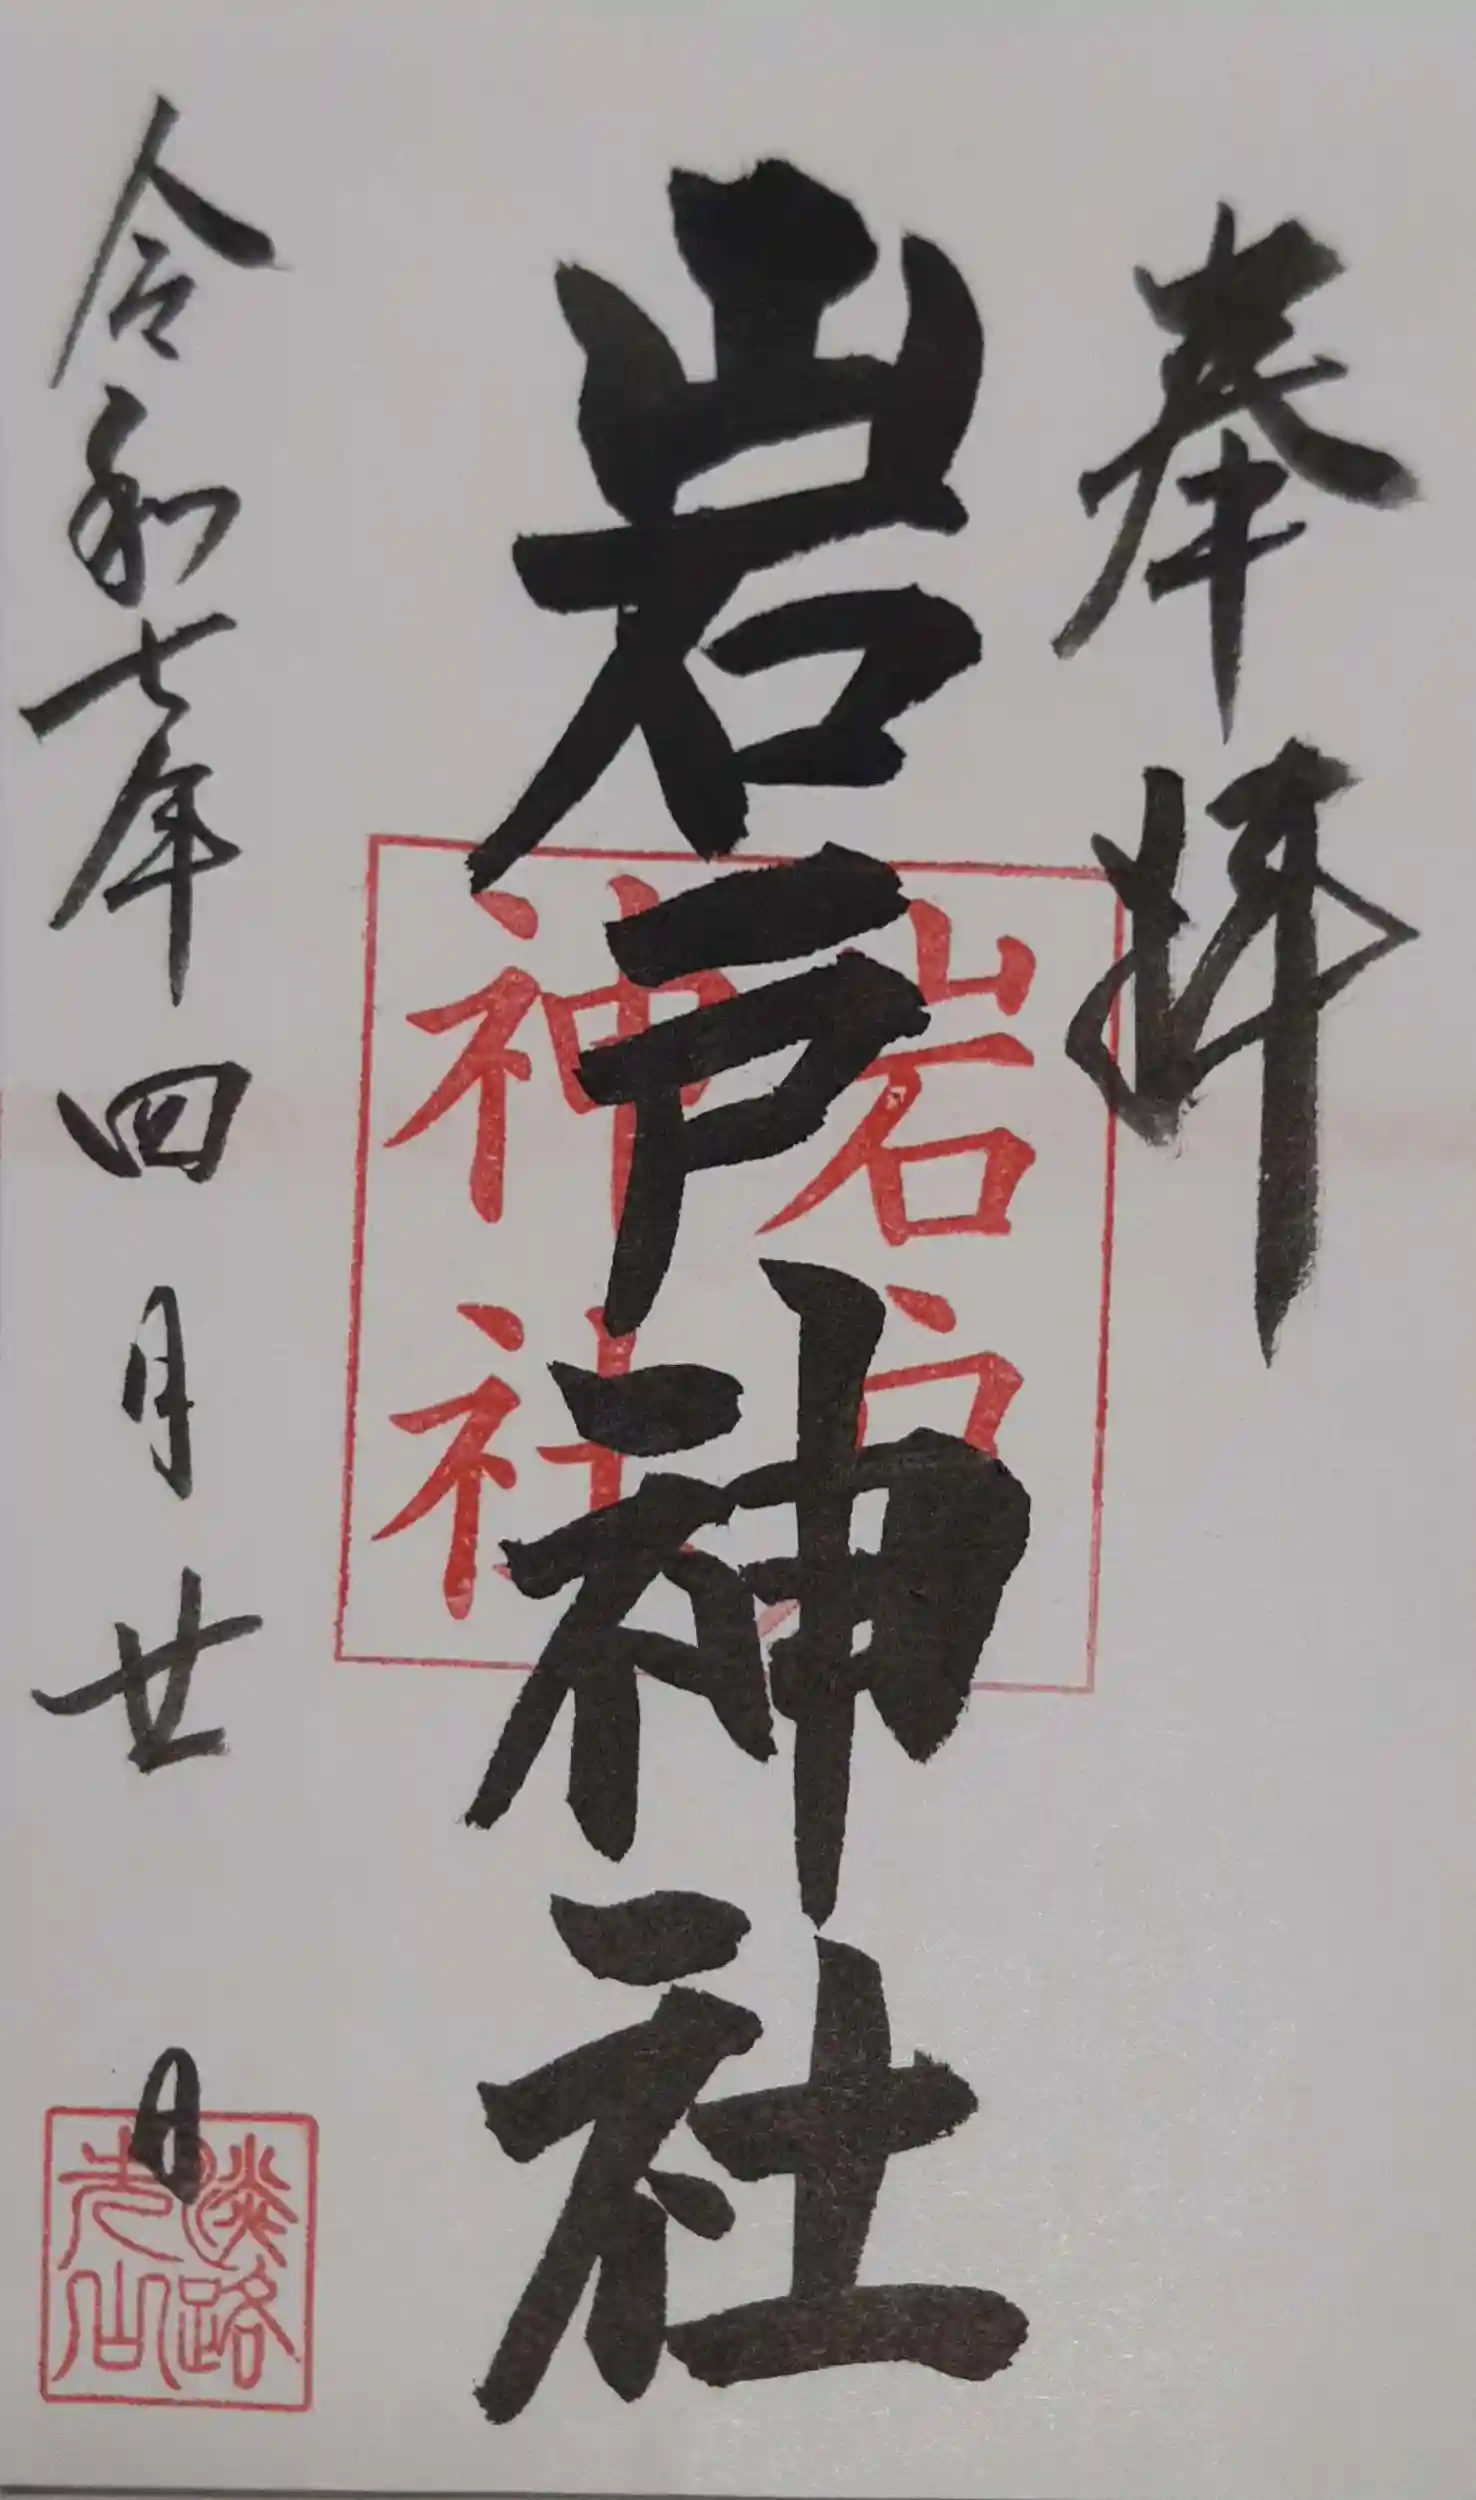 奉拝
岩戸神社
岩戸
神社
令和七年四月廿日
淡路
先山